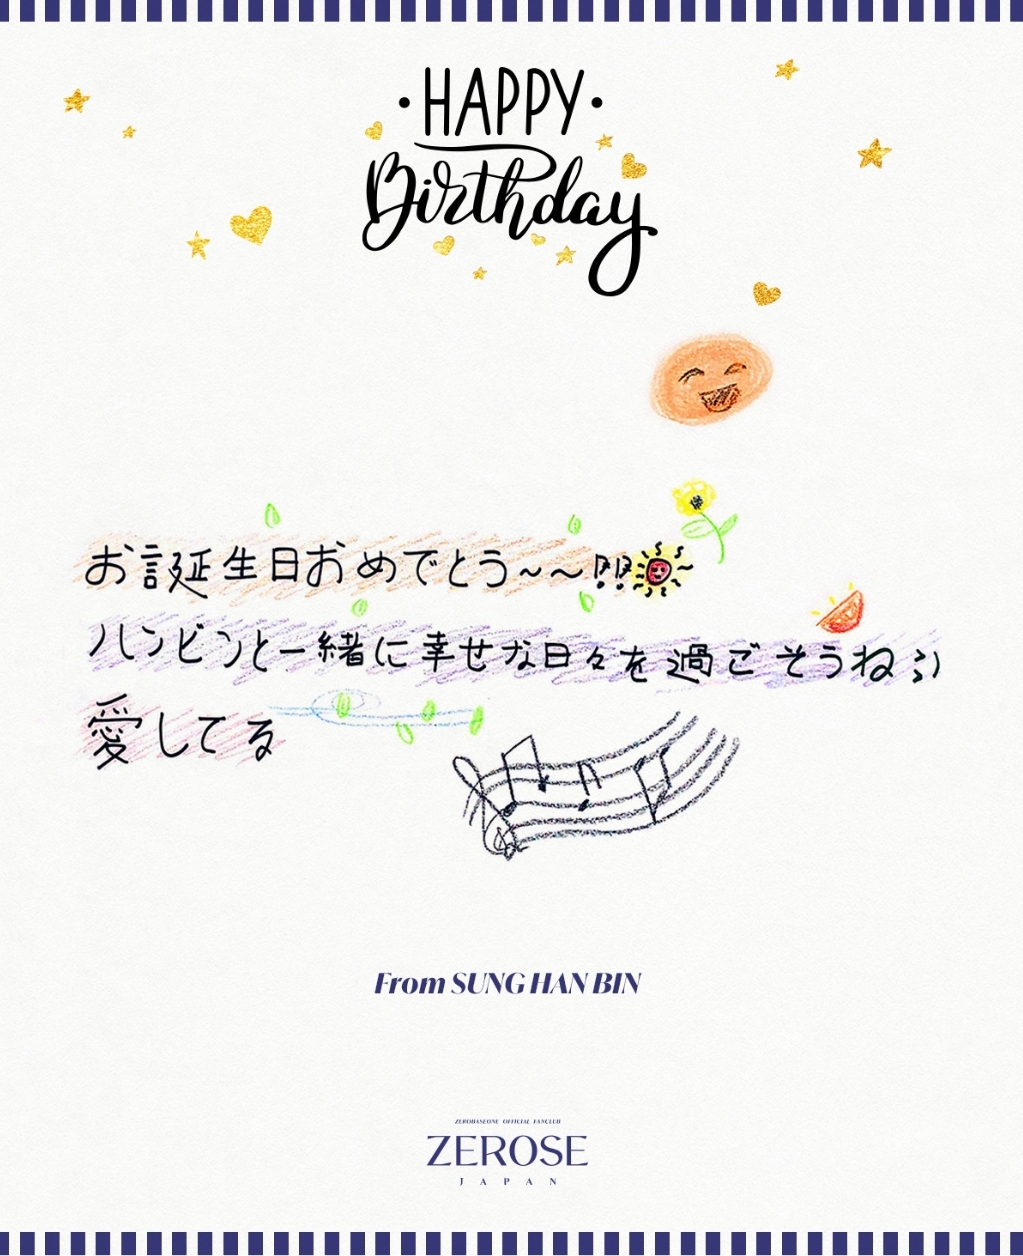 • HAPPY •
Birthday
お誕生日おめでとう～～!!
ハンビンと一緒に幸せな日々を過ごそうね:)
愛してる
From SUNG HAN BIN
ZEROBASEONE OFFICIAL FANCLUB
ZEROSE
JAPAN